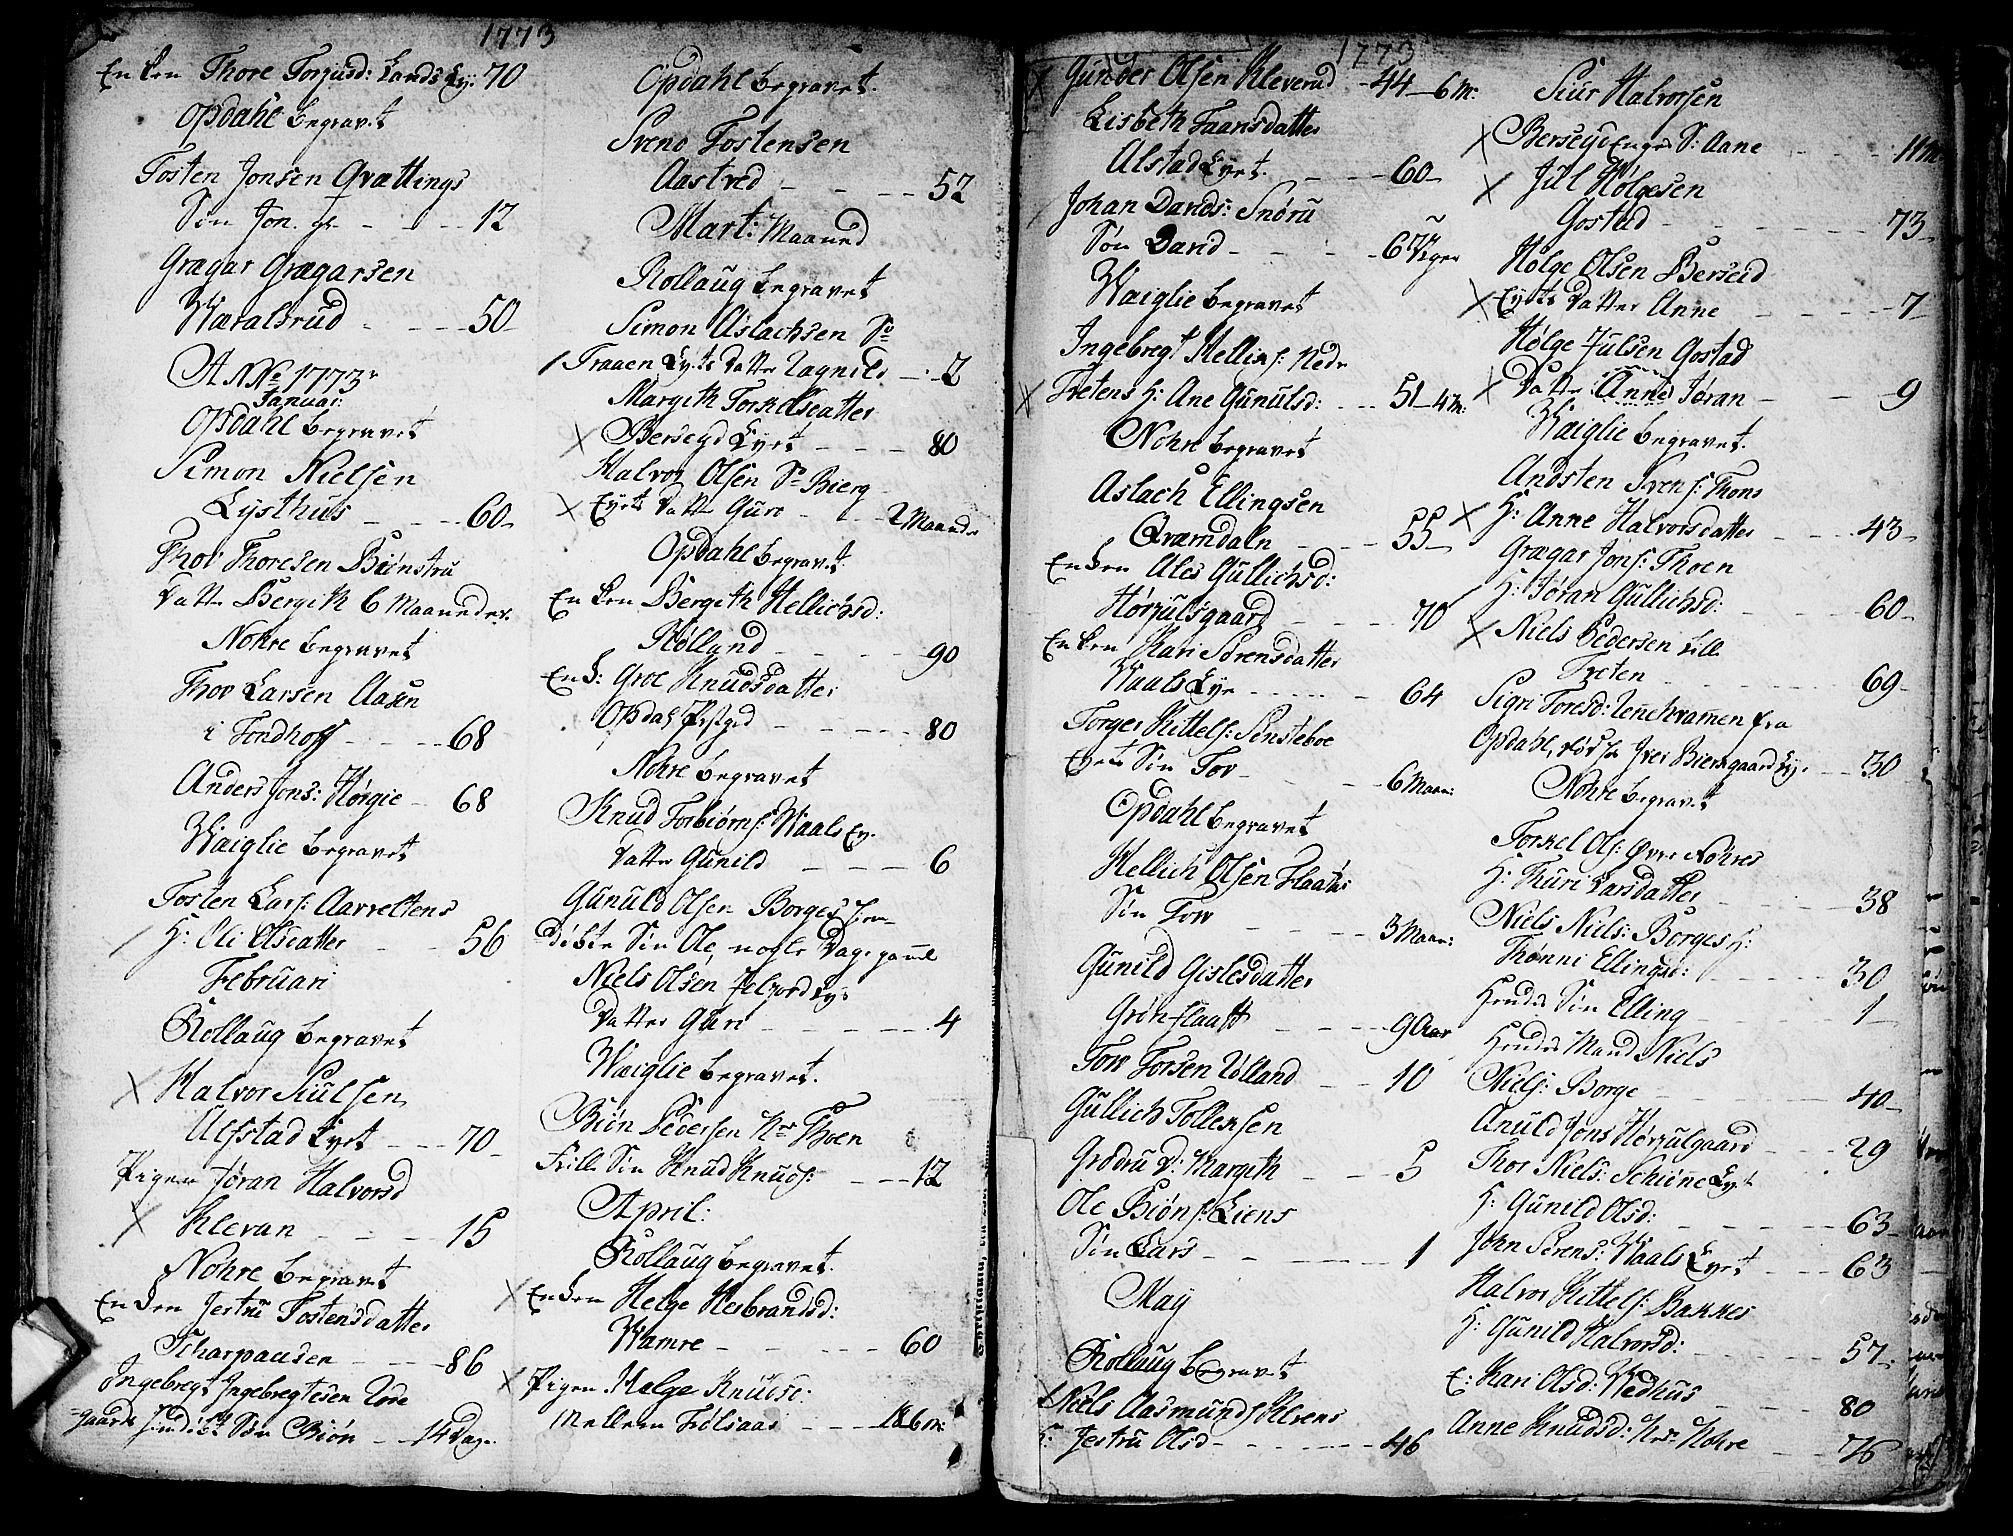 1773
Enken Thore Torjusd: Lands Ey: 70
Opdahl begravet
Tosten Jonsen Qvættings
Søn Jon. gl. 12
Grægar Grægarsen
Wæralsrud 50
ANNo 1773
Januar:
Opdahl begravet
Simon Nielsen
Lysthus 60
Thor Thoresen Biønstru
Datter Bergith 6 Maaneder.
Nohre begravet
Thov Larsen Aasen
i Tondhoff 68
Anders Jons: Hørgie 68
Waiglie begravet
Tosten Lars: Aavveltens
H: Oli Olsdatter 56
Februari
Rollaug begravet
Halvor Siulsen
Ulfstad Eyet 70
Pigen Jøran Halvorsd
Kleven 15
Nohre begravet
Enken Jestru Tostensdatter
Scharpausen 86
Ingebregt Ingebregtesen Ode
gaards Søn Biøn 14 Dage
Opdahl begravet.
Sveno Tostensen
Aastved 52
Mart: Maaned
Rollaug begravet
Simon Aslachsen Sr
Traaen Eyets Datter Ragnild 2
Margith Torkelsdatter
Bersegd Eyet 80
Halvor Olsen Sr Bierg
Eyets Datter Guro 2 Maaneder
Opdahl begravet.
Enken Bergith Hellichsd:
Røllynd 90
Enk: Groe Knudsdatter
Opdahl Præstgrd 80
Nohre begravet
Knud Torbiørns: Waals Ey.
Datter Gunild 6
Gunuld Olsen Borges
døbte Søn Ole, nogle Dage gaml
Niels Olsen Ey:
Datter Guri 4
Waiglie begravet.
Biøn Pedersen Nr Thoen
Søn Knud Knuds: 12
April:
Rollaug begravet.
Enken Helge Herbrandsd:
Wamre 60
Pigen Helge Knudsd:
Mellem Frølsaas 18 6 m:
1773
Gunder Olsen Kleverud 44 6 M:
Lisbeth Faansdatter
Alstad Eyet. 60
Johan Davids: Snøru
Søn David 6 Uger
Waiglie begravet
Ingebregt Hellies: Nedr
Tvetens H: Ane Gunulsd: 51 4 M:
Nohre begravet
Aslach Ellingsen
Qværndaln 55
Enken Ales Gullichsd:
Hørjulsgaard 70
Enken Kari Sørensdatter
Waals Eye 64
Torger Kittels: Sønsteboe
Eyets Søn Tov 6 Maan:
Opdahl begravet
Hellich Olsen Flaatas
Søn Tow 3 Maan:
Gunild Gislesdatter
Grønflaatt 9 Aar
Tow Torsen Udland 10
Gullich Tollensen
Grodru D: Margith 5
Ole Biøns: Liens
Søn Lars 1
May
Rollaug begravet
Niels Aasmunds Klevens
H: Jestru Olsd 46
Siur Halvorsen
Bersegd Enges S: Aane 11 m
Jul Hølgesen
Gostad 73
Hølge Olsen Berseid
Eyets Datter Anne 7
Hølge Julsen Gostad
Datter Anne Jøran 9
Waiglie begravet.
Andsten Svens: Thons
H: Anne Halvorsdatter 43
Grægar Jons: Thoen
H: Jøran Gullichsd: 60
Niels Pedersen Lille
Tveten 69
Sigri Toresd: fra
Opdahl, død Biergaard Ey. 30
Nohre begravet
Torkel Ols: øvre Nohres
H: Thuri Larsdatter 38
Niels Niels: Borges H:
Thønni Ellingsd: 30
Hendes Søn Elling 1
Hendes Mand Niels
Niels: Borge 40
Anuld Jons Hørjulgaard 29
Thor Niels: Schiønne Eyet
H: Gunild Olsd: 63
John Sørens: Waals Eyet 63
Halvor Kittels: Bakkes
H: Gunild Halvorsd: 57
E: Kari Olsd: Wedhus 80
Anne Knudsd: Nrd: Nohre 76